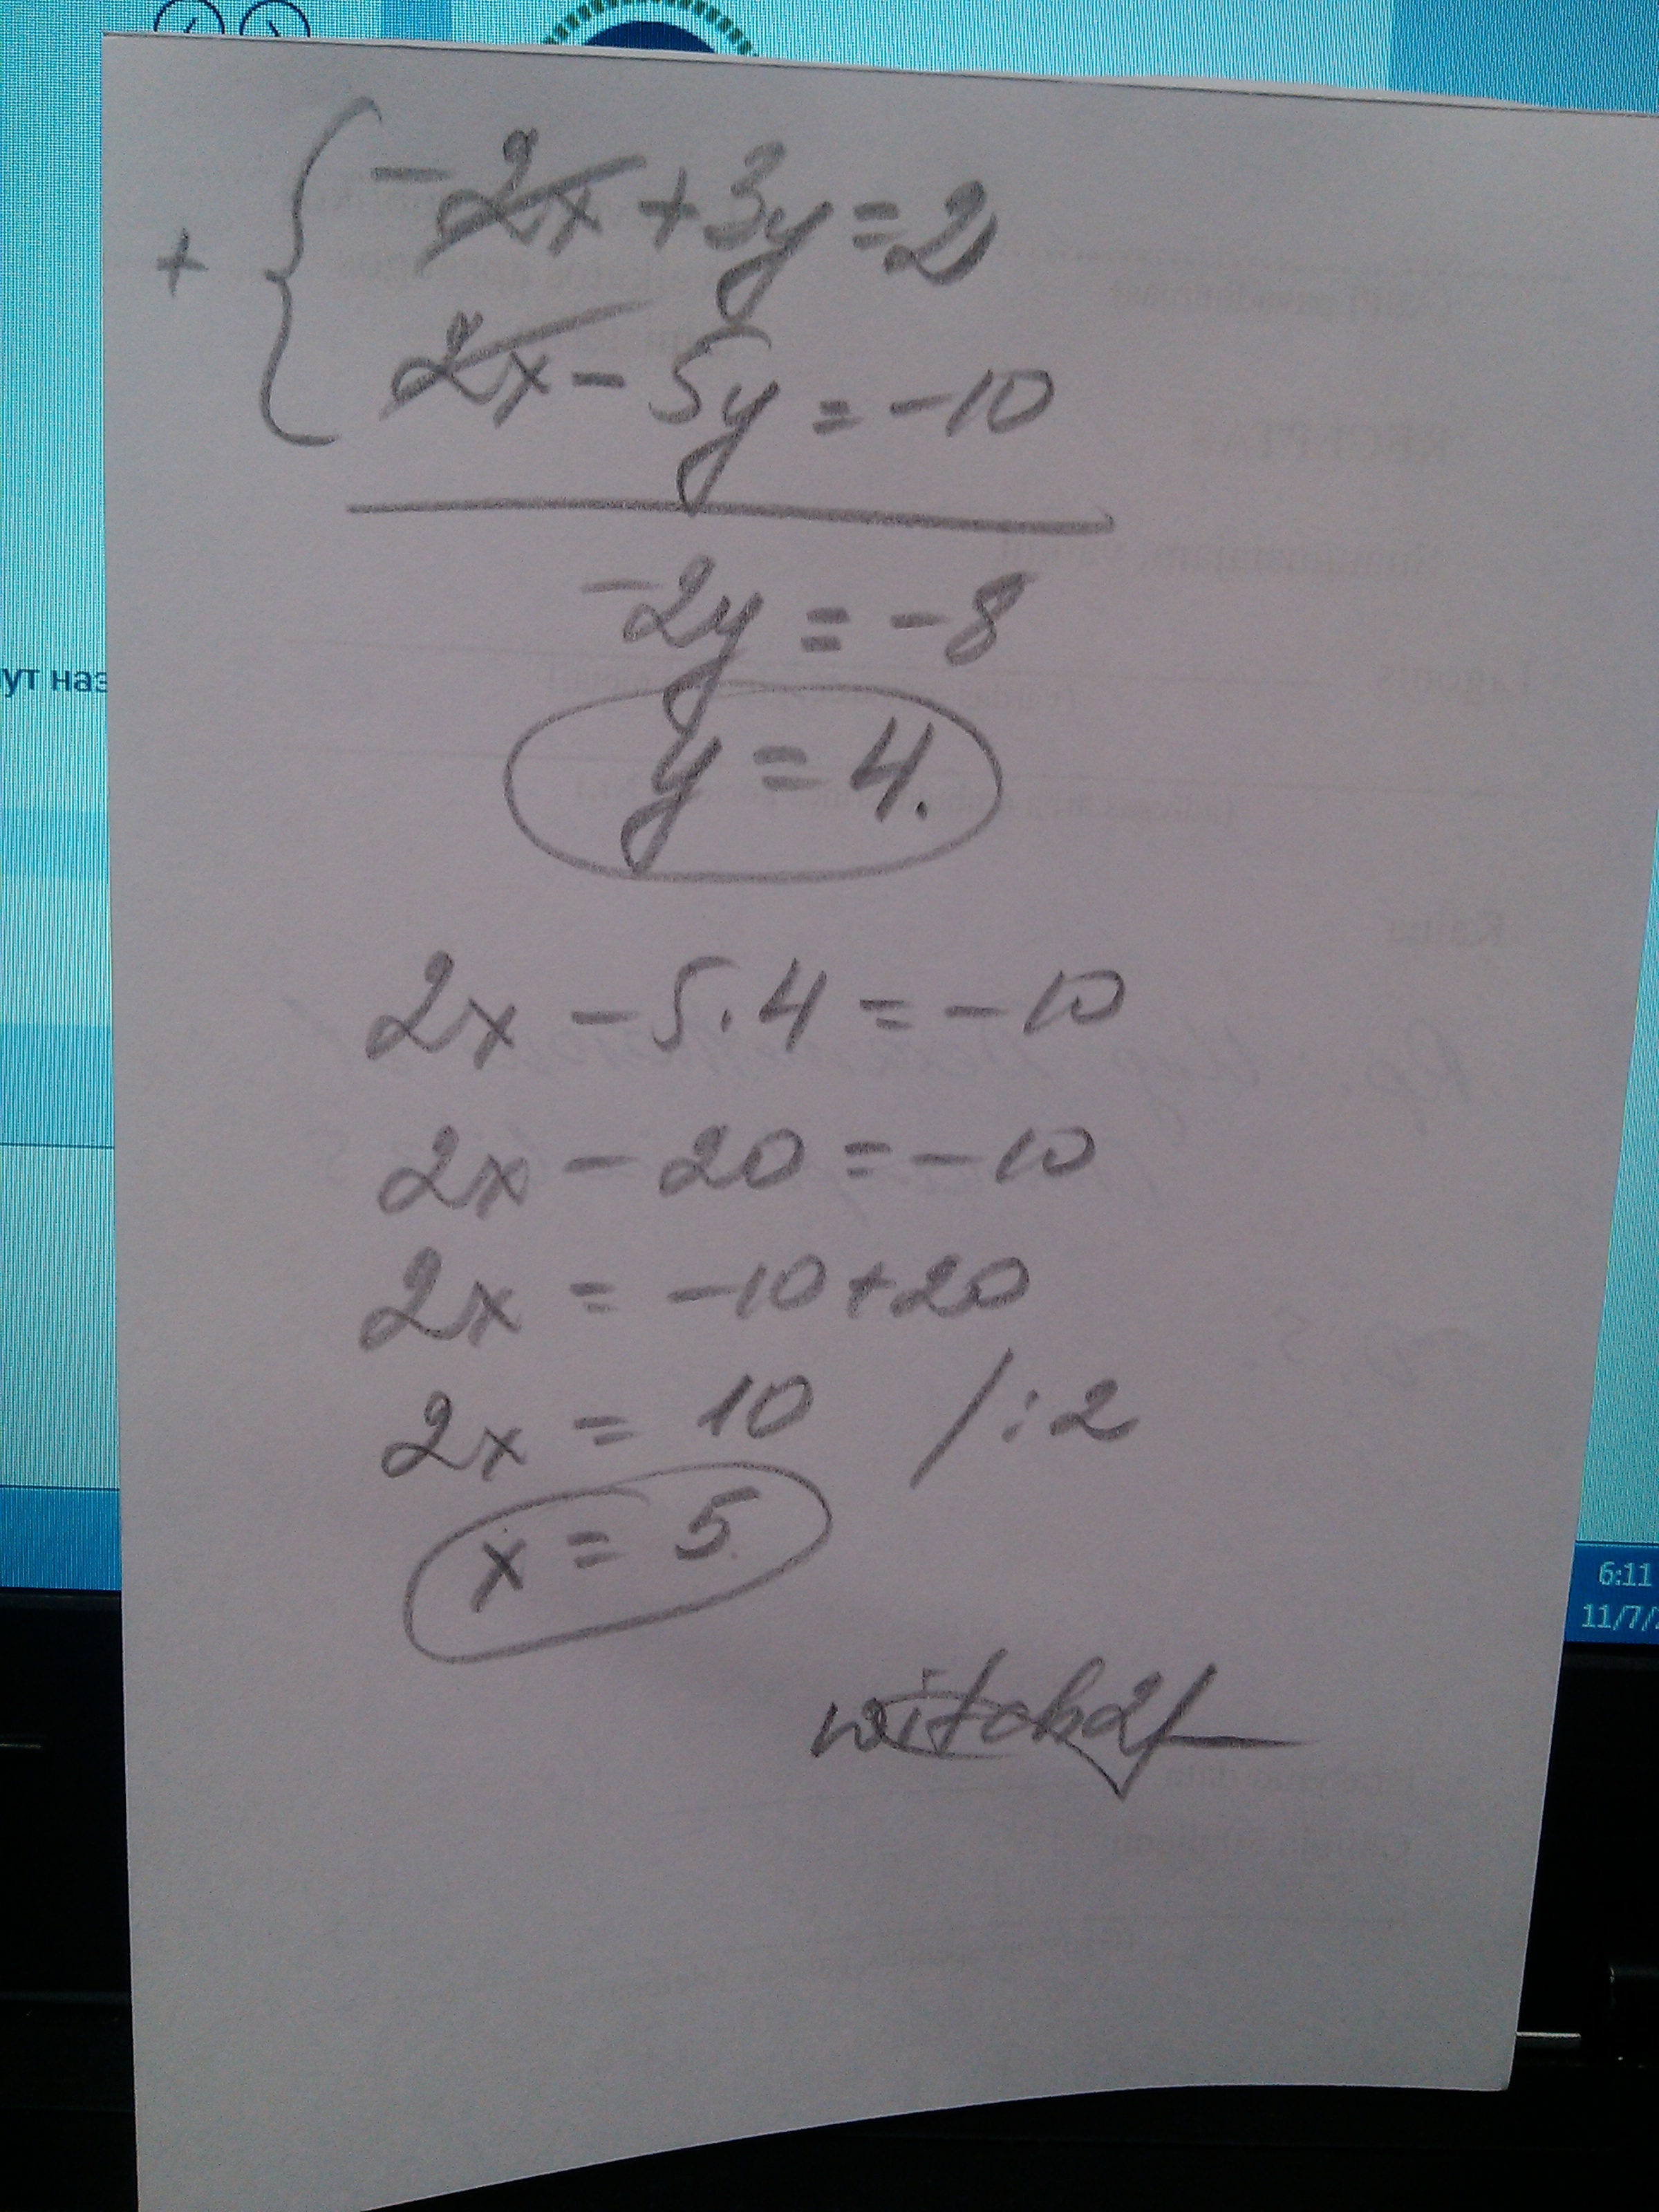 + { -2x + 3y = 2
2x - 5y = -10
-2y = -8
y = 4.
2x - 5·4 = -10
2x - 20 = -10
2x = -10 + 20
2x = 10 /:2
x = 5
witch21
ут наз
6:11
11/7/